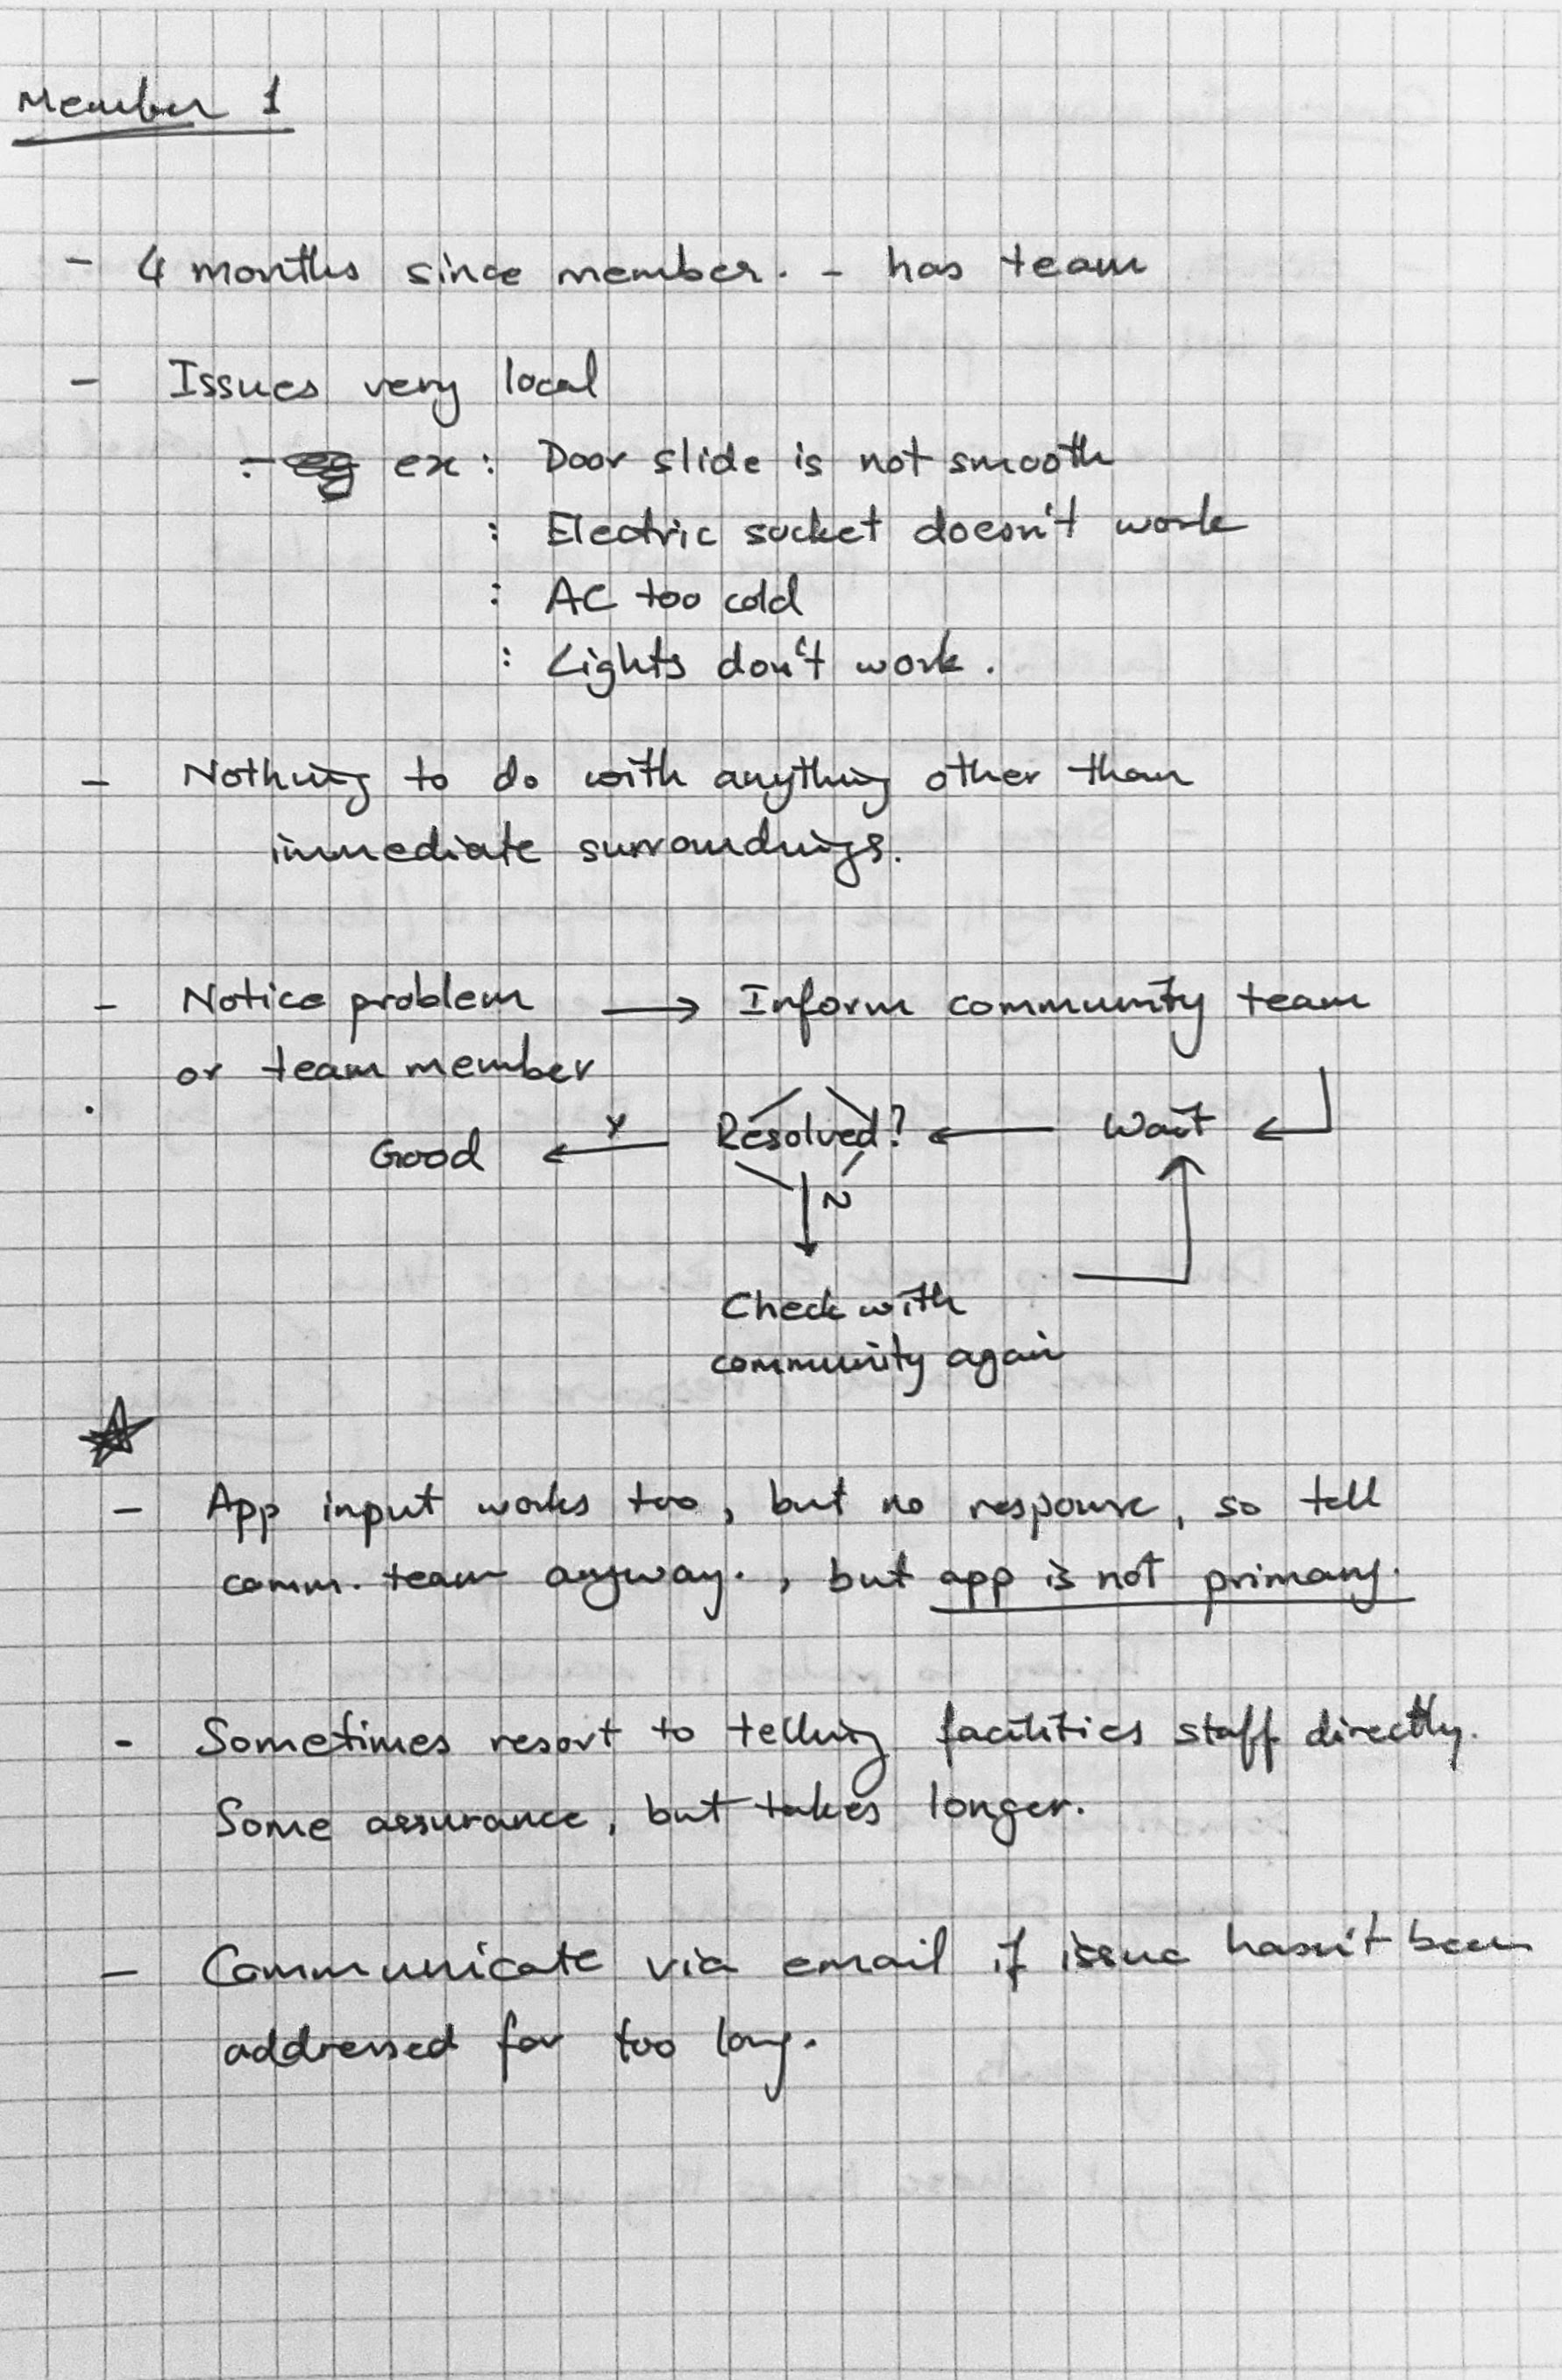 Member 1
- 4 months since member. - has team
- Issues very local
ex : Door slide is not smooth
: Electric socket doesn't work
: AC too cold
: Lights don't work.
- Nothing to do with anything other than
immediate surroundings.
- Notice problem → Inform community team
or team member
Good ← Y Resolved? ← Wait
N
Check with
community again
- App input works too, but no response, so tell
comm. team anyway. , but app is not primary.
- Sometimes resort to telling facilities staff directly.
Some assurance, but takes longer.
- Communicate via email if issue hasn't been
addressed for too long.